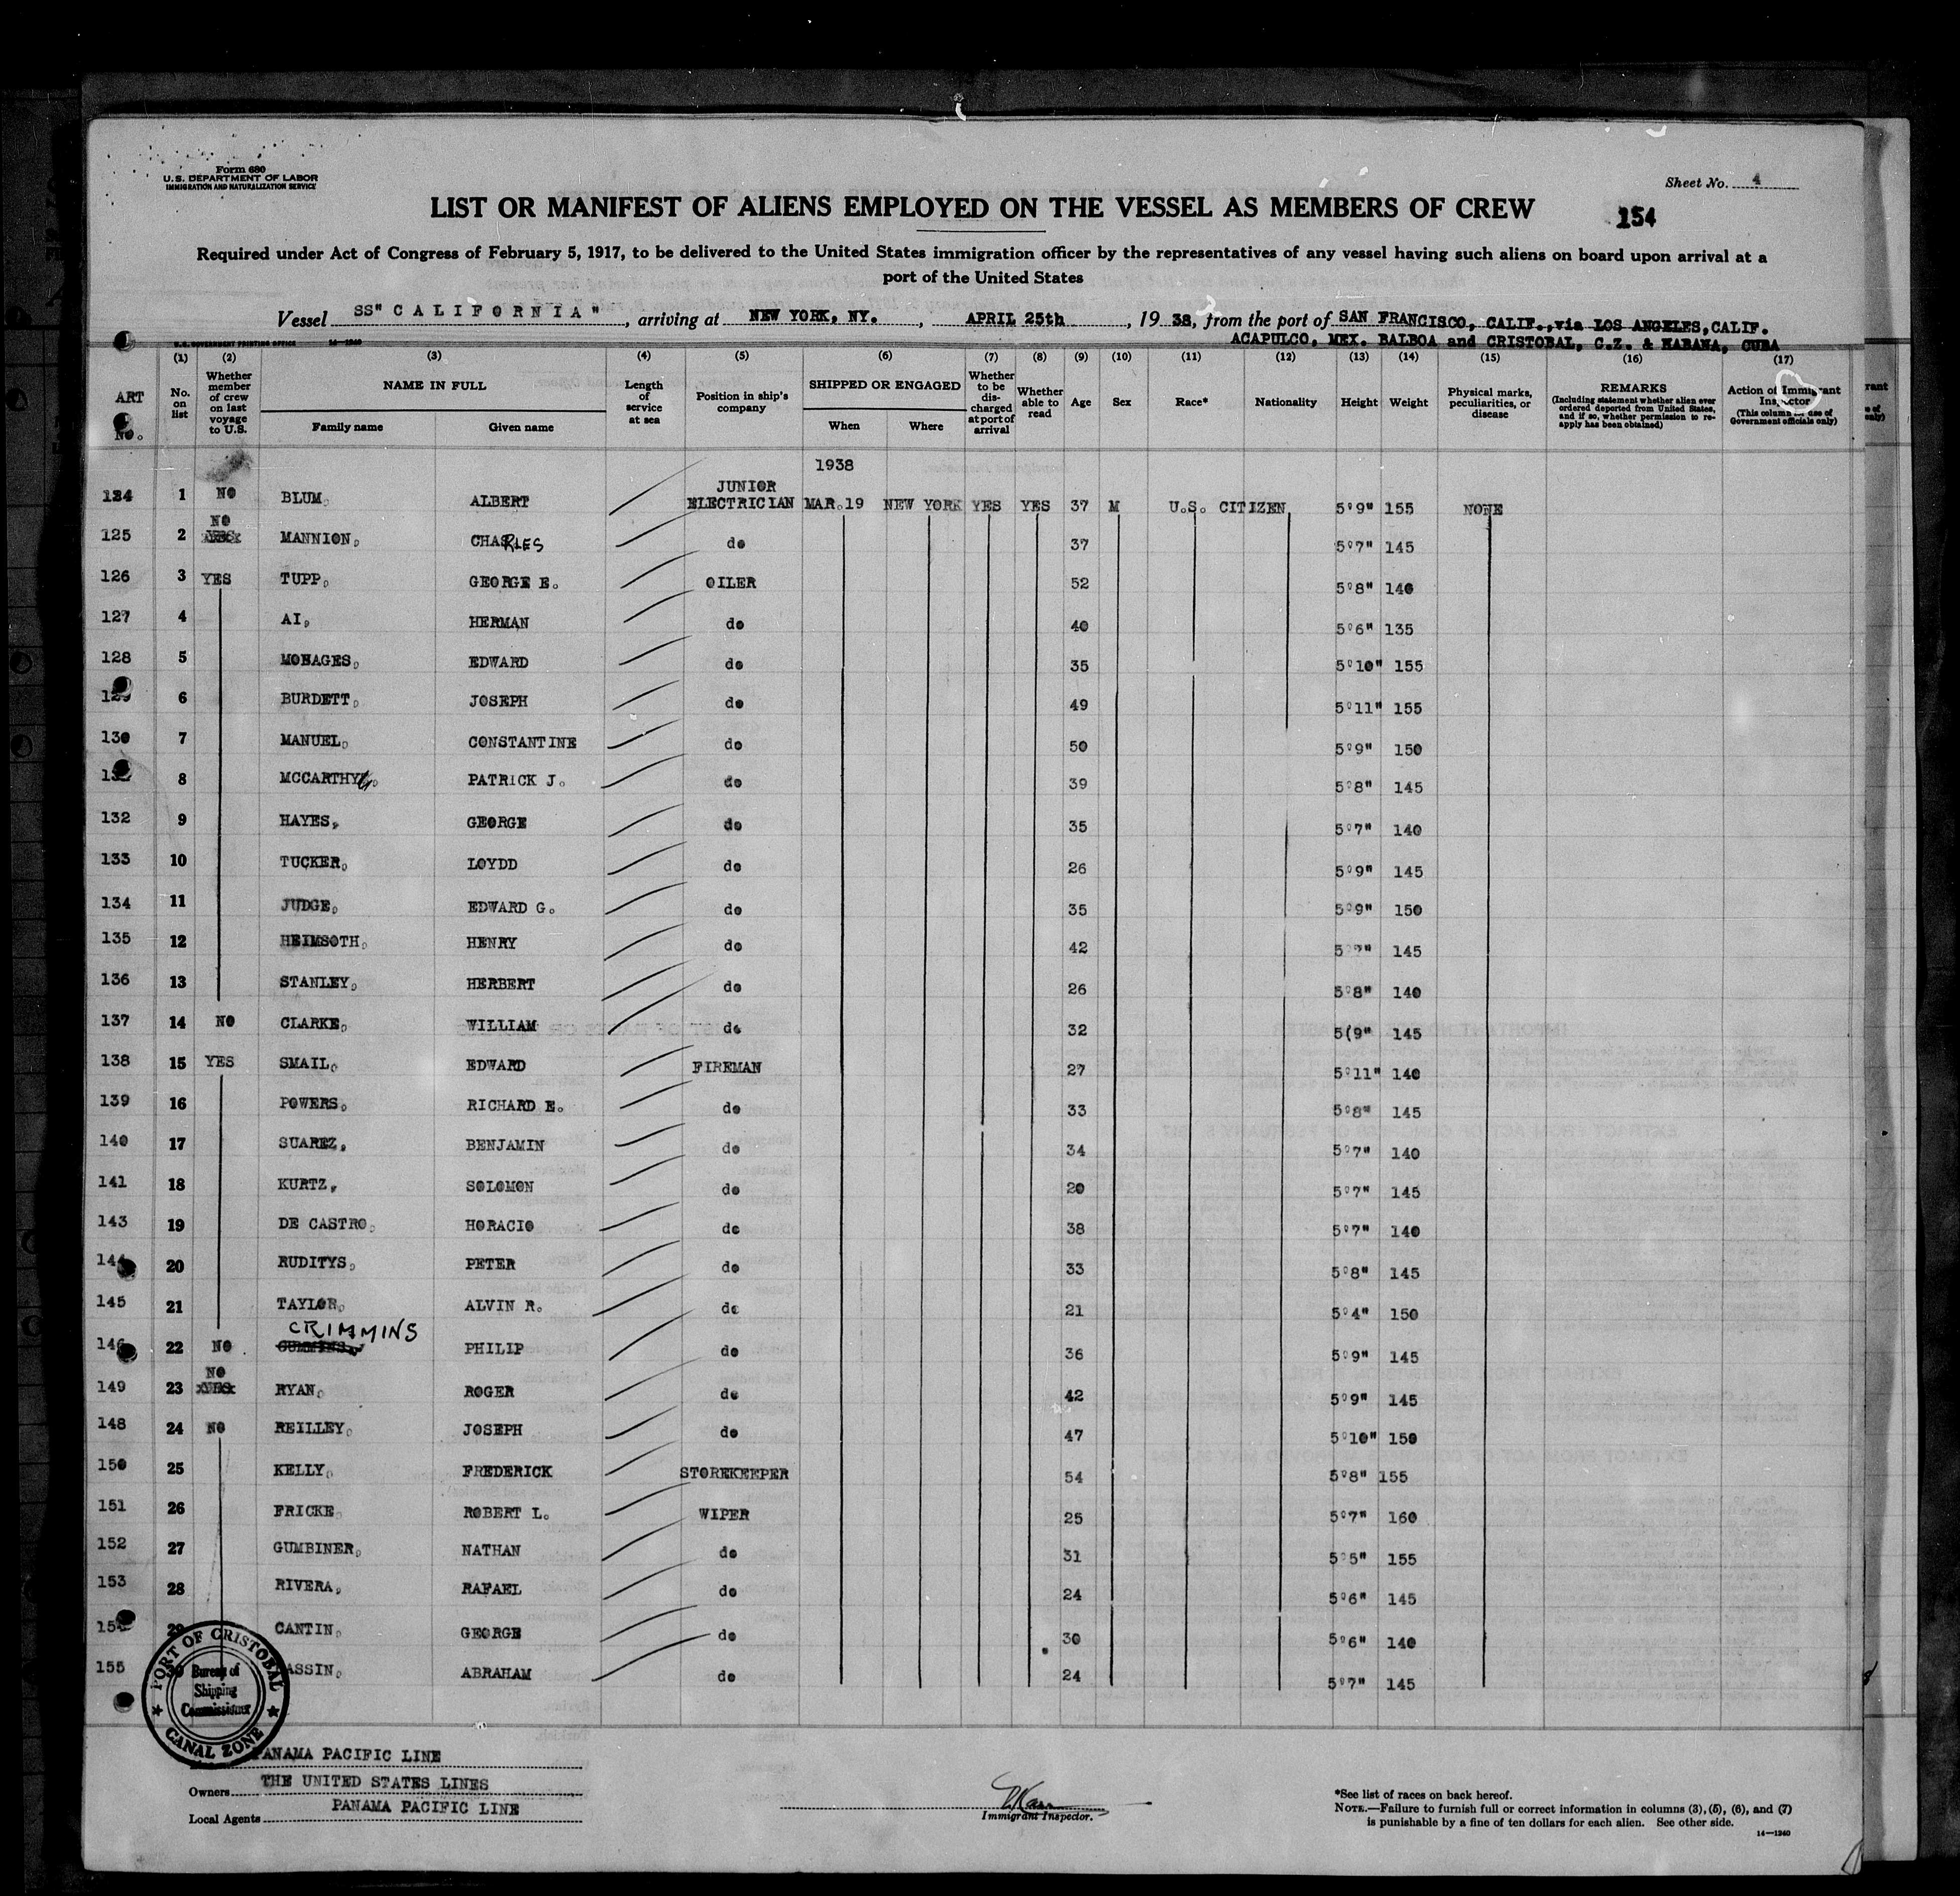 Form 680
U.S. DEPARTMENT OF LABOR
IMMIGRATION AND NATURALIZATION SERVICE
Sheet No. 4
LIST OR MANIFEST OF ALIENS EMPLOYED ON THE VESSEL AS MEMBERS OF CREW
154
Required under Act of Congress of February 5, 1917, to be delivered to the United States immigration officer by the representatives of any vessel having such aliens on board upon arrival at a
port of the United States
Vessel SS" CALIFORNIA ", arriving at NEW YORK, NY., APRIL 25th, 1938, from the port of SAN FRANCISCO, CALIF.,via LOS ANGELES,CALIF.
ACAPULCO, MEX. BALBOA and CRISTOBAL, C.Z. & HABANA, CUBA
U.S. GOVERNMENT PRINTING OFFICE 14—1240
(1) (2) (3) (4) (5) (6) (7) (8) (9) (10) (11) (12) (13) (14) (15) (16) (17)
ART No.
No. on list
Whether member of crew on last voyage to U.S.
NAME IN FULL
Family name Given name
Length of service at sea
Position in ship's company
SHIPPED OR ENGAGED
When Where
Whether to be discharged at port of arrival
Whether able to read
Age Sex Race* Nationality Height Weight
Physical marks, peculiarities, or disease
REMARKS
(Including statement whether alien ever ordered deported from United States, and if so, whether permission to reapply has been obtained)
Action of Immigrant Inspector
(This column for use of Government officials only)
1938
124 1 NO BLUM, ALBERT JUNIOR ELECTRICIAN MAR.19 NEW YORK YES YES 37 M U.S. CITIZEN 5°9" 155 NONE
125 2 NO YES MANNION, CHARLES do 37 5°7" 145
126 3 YES TUPP, GEORGE E. OILER 52 5°8" 140
127 4 AI, HERMAN do 40 5°6" 135
128 5 MONAGES, EDWARD do 35 5°10" 155
129 6 BURDETT, JOSEPH do 49 5°11" 155
130 7 MANUEL, CONSTANTINE do 50 5°9" 150
8 MCCARTHY, PATRICK J. do 39 5°8" 145
132 9 HAYES, GEORGE do 35 5°7" 140
133 10 TUCKER, LOYDD do 26 5°9" 145
134 11 JUDGE, EDWARD G. do 35 5°9" 150
135 12 HEIMSOTH, HENRY do 42 145
136 13 STANLEY, HERBERT do 26 5°8" 140
137 14 NO CLARKE, WILLIAM do 32 5(9" 145
138 15 YES SMAIL, EDWARD FIREMAN 27 5°11" 140
139 16 POWERS, RICHARD E. do 33 5°8" 145
140 17 SUAREZ, BENJAMIN do 34 5°7" 140
141 18 KURTZ, SOLOMON do 20 5°7" 145
143 19 DE CASTRO, HORACIO do 38 5°7" 140
144 20 RUDITYS, PETER do 33 5°8" 145
145 21 TAYLOR, ALVIN R. do 21 5°4" 150
146 22 NO CRIMMINS PHILIP do 36 5°9" 145
149 23 NO YES RYAN, ROGER do 42 5°9" 145
148 24 NO REILLEY, JOSEPH do 47 5°10" 150
150 25 KELLY, FREDERICK STOREKEEPER 54 5°8" 155
151 26 FRICKE, ROBERT L. WIPER 25 5°7" 160
152 27 GUMBINER, NATHAN do 31 5°5" 155
153 28 RIVERA, RAFAEL do 24 5°6" 145
29 CANTIN, GEORGE do 30 5°6" 140
155 30 ASSIN, ABRAHAM do 24 5°7" 145
PORT OF CRISTOBAL
Bureau of
Shipping
Commissioner
CANAL ZONE
PANAMA PACIFIC LINE
Owners THE UNITED STATES LINES
Local Agents PANAMA PACIFIC LINE
Immigrant Inspector.
*See list of races on back hereof.
NOTE.—Failure to furnish full or correct information in columns (3), (5), (6), and (7)
is punishable by a fine of ten dollars for each alien. See other side.
14—1240